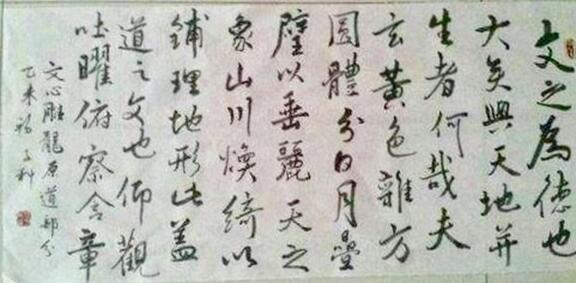 文之為德也
大矣與天地并
生者何哉夫
玄黃色雜方
圓體分日月疊
璧以垂麗天之
象山川煥綺以
鋪理地形此蓋
道之文也仰觀
吐曜俯察含章
文心雕龍原道部分
乙未 子科